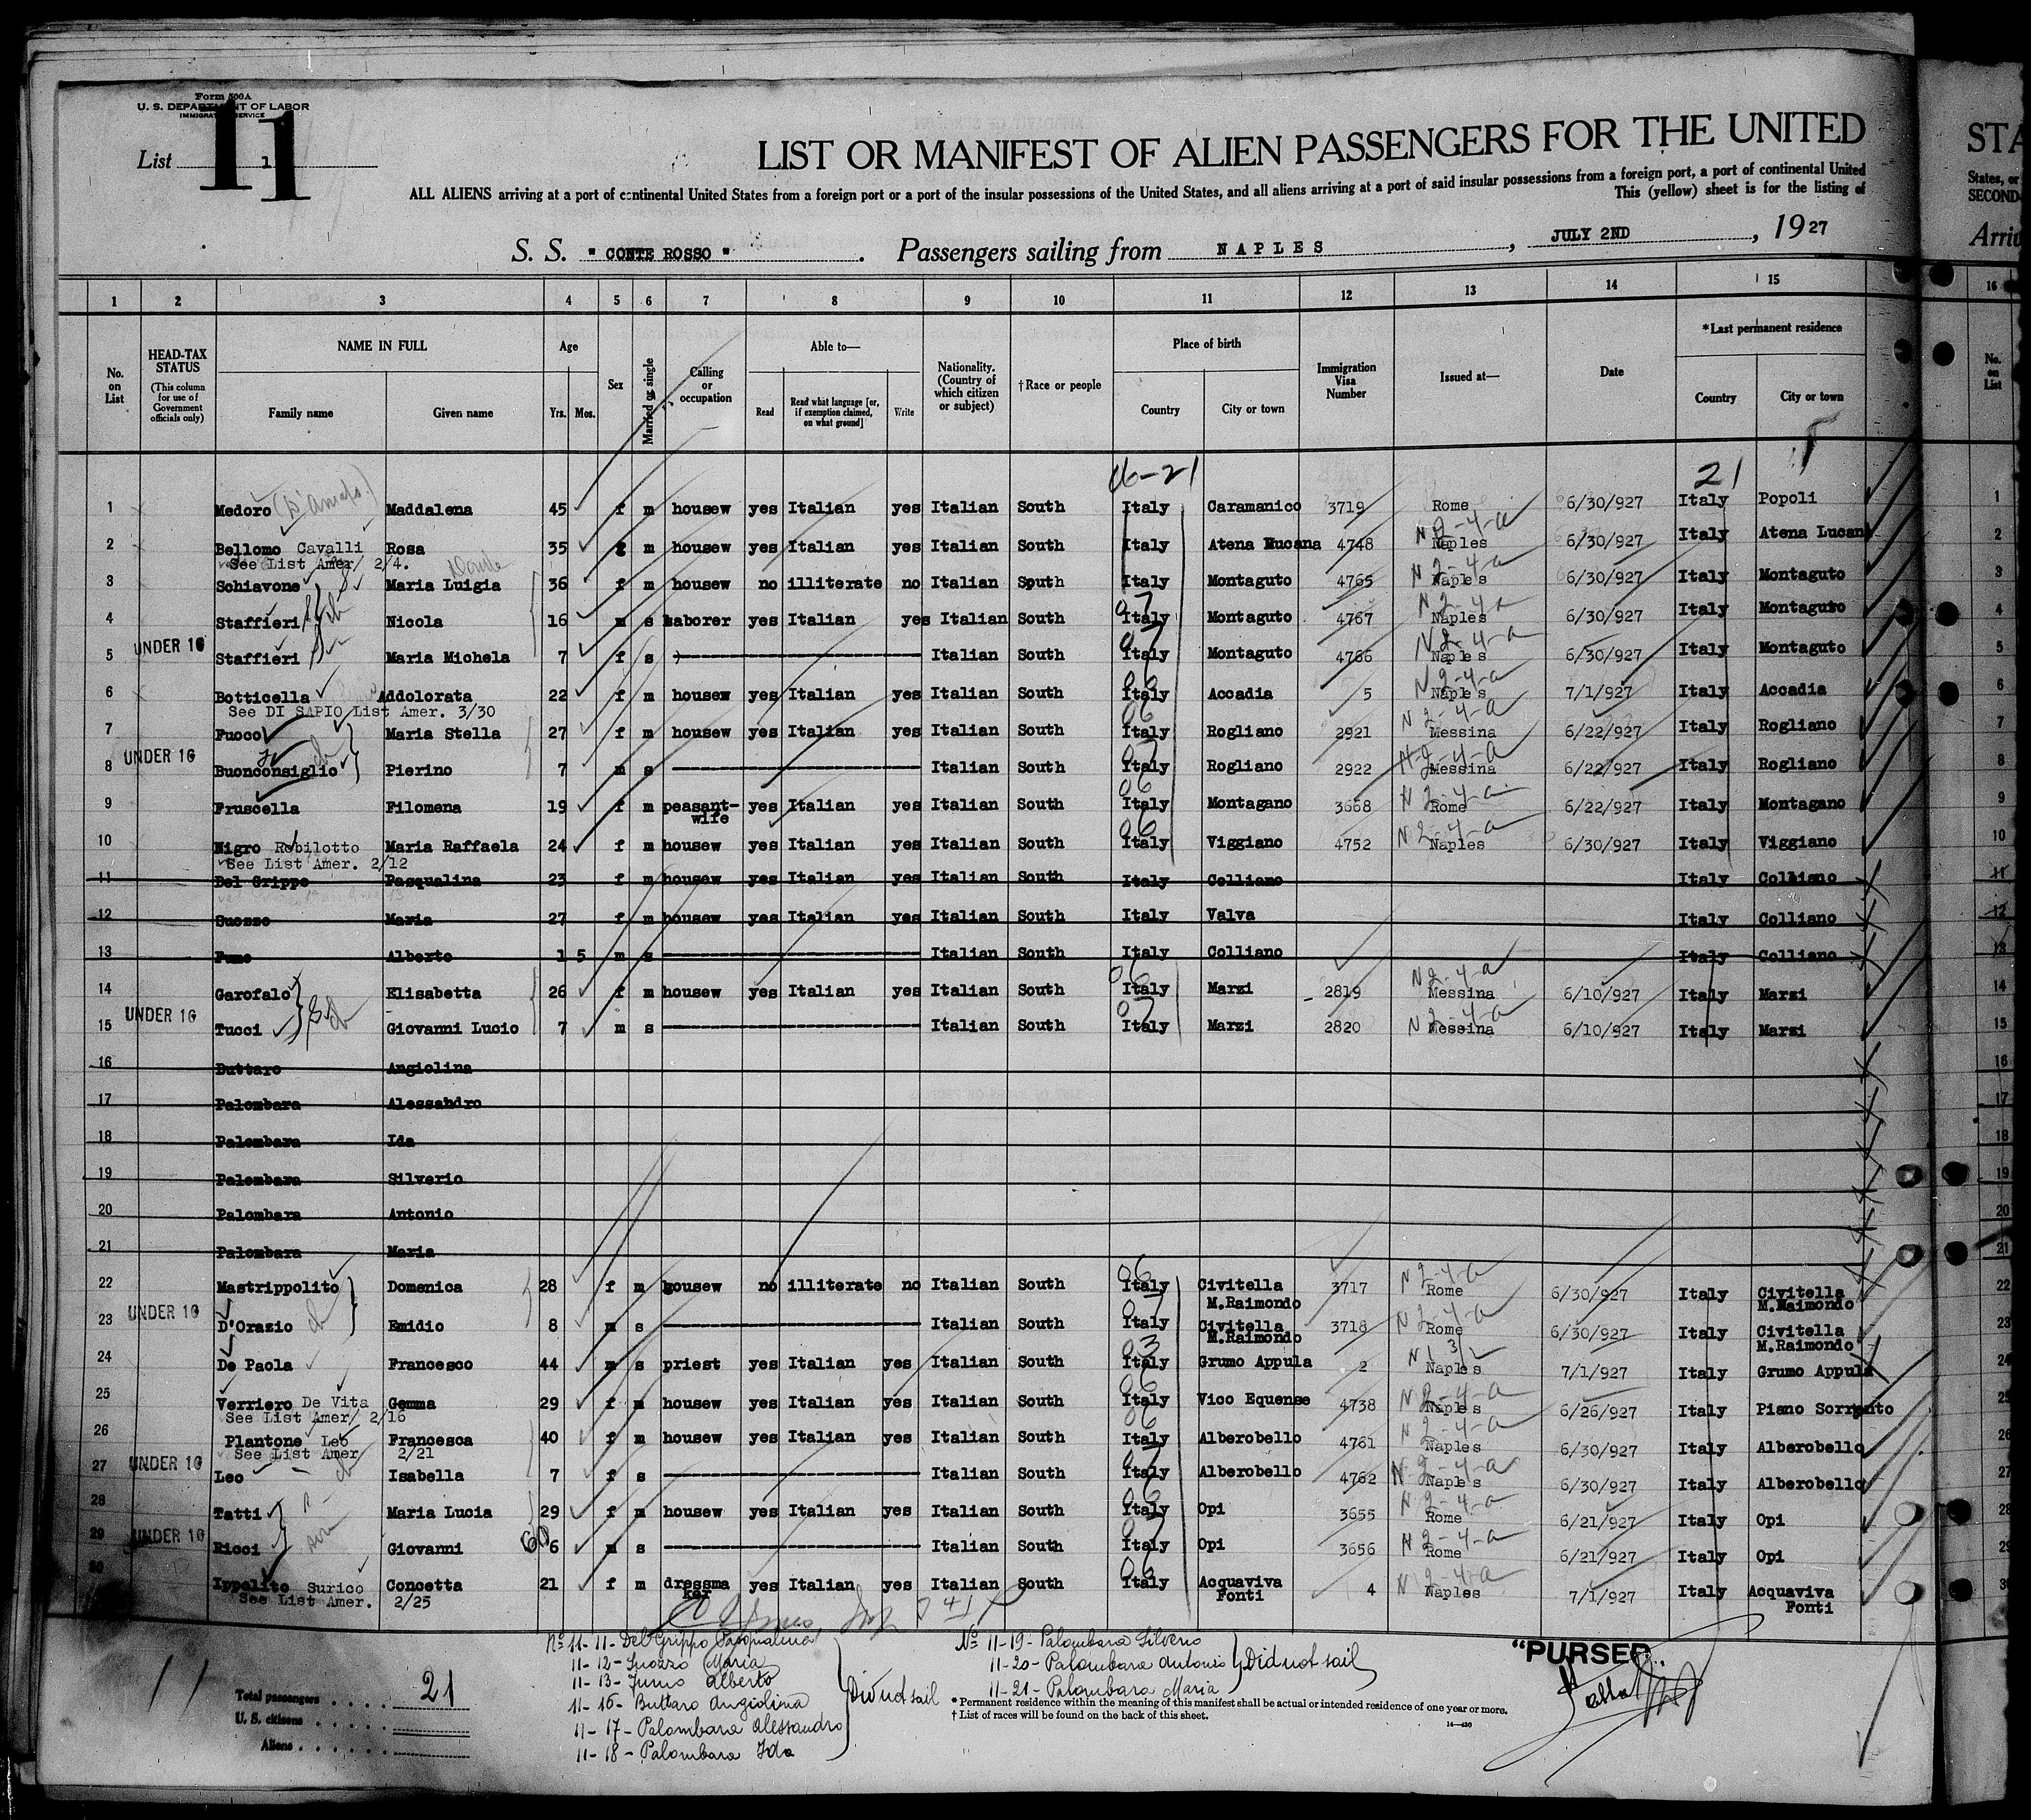 Form 500A
U. S. DEPARTMENT OF LABOR
IMMIGRATION SERVICE
11
List 1
LIST OR MANIFEST OF ALIEN PASSENGERS FOR THE UNITED
STA
ALL ALIENS arriving at a port of continental United States from a foreign port or a port of the insular possessions of the United States, and all aliens arriving at a port of said insular possessions from a foreign port, a port of continental United
States, or
This (yellow) sheet is for the listing of
SECOND-
S. S. " CONTE ROSSO " . Passengers sailing from NAPLES , JULY 2ND , 1927
Arriv
1 2 3 4 5 6 7 8 9 10 11 12 13 14 15 16
No. on List
HEAD-TAX STATUS (This column for use of Government officials only)
NAME IN FULL Family name Given name
Age Yrs. Mos.
Sex
Married or single
Calling or occupation
Able to— Read Read what language [or, if exemption claimed, on what ground] Write
Nationality. (Country of which citizen or subject)
†Race or people
Place of birth Country City or town
Immigration Visa Number
Issued at—
Date
*Last permanent residence Country City or town
No. on List
06-21 21
1 Medoro Maddalena 45 f m housew yes Italian yes Italian South Italy Caramanico 3719 Rome 6/30/927 Italy Popoli 1
2 Bellomo Cavalli Rosa 35 f m housew yes Italian yes Italian South Italy Atena Mucana 4748 N2-4-a Naples 6/30/927 Italy Atena Lucana 2
See List Amer/ 2/4.
3 Schiavone Maria Luigia 36 f m housew no illiterate no Italian South Italy Montaguto 4765 N2-4-a Naples 6/30/927 Italy Montaguto 3
4 Staffieri Nicola 16 m s laborer yes Italian yes Italian South 07 Italy Montaguto 4767 N2-4-a Naples 6/30/927 Italy Montaguto 4
UNDER 16
5 Staffieri Maria Michela 7 f s Italian South 07 Italy Montaguto 4766 N2-4-a Naples 6/30/927 Italy Montaguto 5
6 Botticella Addolorata 22 f m housew yes Italian yes Italian South 06 Italy Accadia 5 N2-4-a Naples 7/1/927 Italy Accadia 6
See DI SAPIO List Amer. 3/30
7 Fuoco Maria Stella 27 f m housew yes Italian yes Italian South 06 Italy Rogliano 2921 N2-4-a Messina 6/22/927 Italy Rogliano 7
UNDER 16
8 Buonconsiglio Pierino 7 m s Italian South 07 Italy Rogliano 2922 N2-4-a Messina 6/22/927 Italy Rogliano 8
9 Fruscella Filomena 19 f m peasant-wife yes Italian yes Italian South 06 Italy Montagano 3668 N2-4-a Rome 6/22/927 Italy Montagano 9
10 Nigro Robilotto Maria Raffaela 24 f m housew yes Italian yes Italian South 06 Italy Viggiano 4752 N2-4-a Naples 6/30/927 Italy Viggiano 10
See List Amer. 2/12
11 Del Grippo Pasqualina 23 f m housew yes Italian yes Italian South Italy Colliano Italy Colliano 11
12 Suozzo Maria 27 f m housew yes Italian yes Italian South Italy Valva Italy Colliano 12
13 Fumo Alberto 1 5 m s Italian South Italy Colliano Italy Colliano 13
14 Garofalo Elisabetta 26 f m housew yes Italian yes Italian South 06 Italy Marzi 2819 N2-4-a Messina 6/10/927 Italy Marzi 14
UNDER 16
15 Tucci Giovanni Lucio 7 m s Italian South 07 Italy Marzi 2820 N2-4-a Messina 6/10/927 Italy Marzi 15
16 Buttaro Angiolina 16
17 Palombara Alessandro 17
18 Palombara Ida 18
19 Palombara Silverio 19
20 Palombara Antonio 20
21 Palombara Maria 21
22 Mastrippolito Domenica 28 f m housew no illiterate no Italian South 06 Italy Civitella M.Raimondo 3717 N2-4-a Rome 6/30/927 Italy Civitella M.Raimondo 22
UNDER 16
23 D'Orazio Emidio 8 m s Italian South 07 Italy Civitella M.Raimondo 3718 N2-4-a Rome 6/30/927 Italy Civitella M.Raimondo 23
24 De Paola Francesco 44 m s priest yes Italian yes Italian South 03 Italy Grumo Appula 2 Naples 7/1/927 Italy Grumo Appula 24
25 Verriero De Vita Gemma 29 f m housew yes Italian yes Italian South 06 Italy Vico Equense 4738 N2-4-a Naples 6/26/927 Italy Piano Sorrento 25
See List Amer/ 2/16
26 Plantone Leo Francesca 40 f m housew yes Italian yes Italian South 06 Italy Alberobello 4761 N2-4-a Naples 6/30/927 Italy Alberobello 26
See List Amer 2/21
UNDER 16
27 Leo Isabella 7 f s Italian South 07 Italy Alberobello 4762 N2-4-a Naples 6/30/927 Italy Alberobello 27
28 Tatti Maria Lucia 29 f m housew yes Italian yes Italian South 06 Italy Opi 3655 N2-4-a Rome 6/21/927 Italy Opi 28
UNDER 16
29 Ricci Giovanni 6 m s Italian South 07 Italy Opi 3656 N2-4-a Rome 6/21/927 Italy Opi 29
30 Ippolito Surico Concetta 21 f m dressmaker yes Italian yes Italian South 06 Italy Acquaviva Fonti 4 N2-4-a Naples 7/1/927 Italy Acquaviva Fonti 30
See List Amer. 2/25
No 11-11- Del Grippo Pasqualina
11-12- Suozzo Maria
11-13- Fumo Alberto
11-16- Buttaro Angiolina
11-17- Palombara Alessandro
11-18- Palombara Ida
Did not sail
No 11-19- Palombara Silverio
11-20- Palombara Antonio
11-21- Palombara Maria
Did not sail
"PURSER"
11
Total passengers . . . . 21
U. S. citizens . . . . .
Aliens . . . . . .
* Permanent residence within the meaning of this manifest shall be actual or intended residence of one year or more.
† List of races will be found on the back of this sheet.
14—430